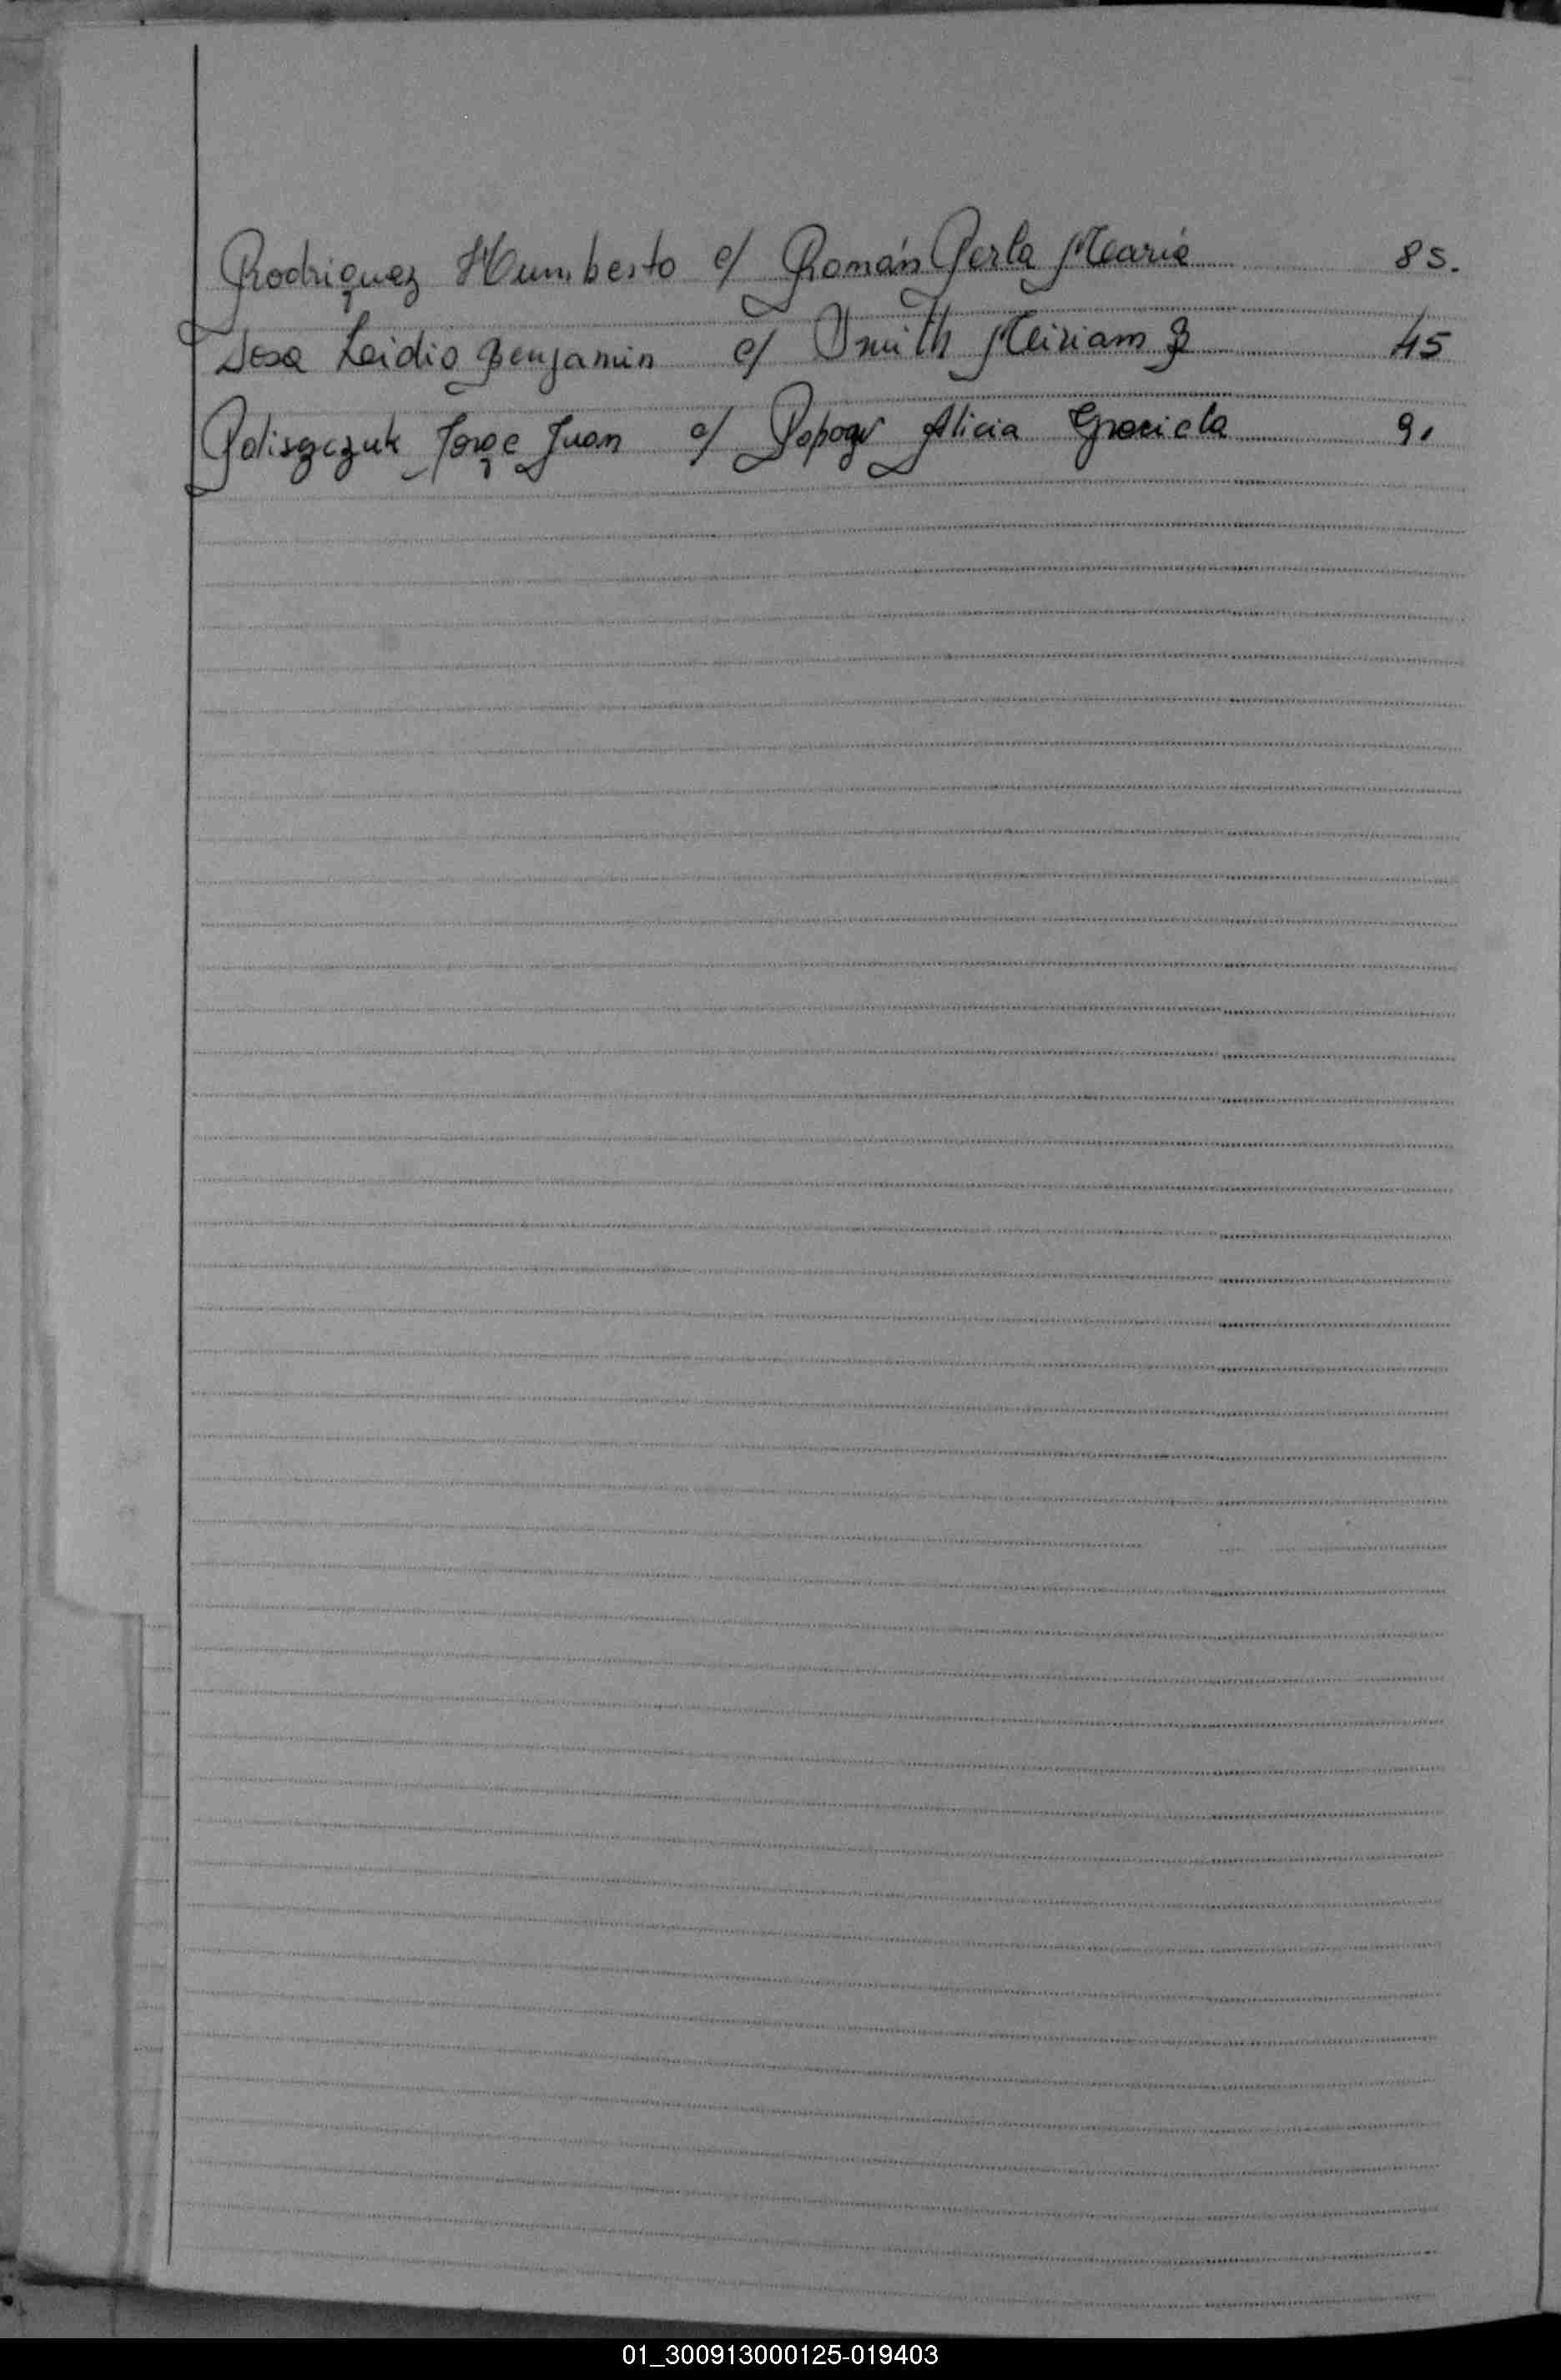 Rodriguez Humberto c/ Román Perla Maria 85.
Sosa Leidio Benjamin c/ Smith Miriam B 45
Poliszczuk Jorge Juan c/ Alicia Graciela 9.
01_300913000125-019403